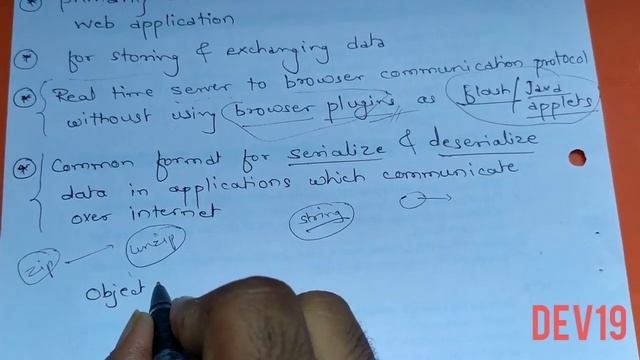 web application
for storing & exchanging data
Real time server to browser communication protocol
withoust using browser plugins as flash/Java
applets
Common format for serialize & deserialize
data in applications which communicate
over internet
string
zip unzip
Object
DEV19